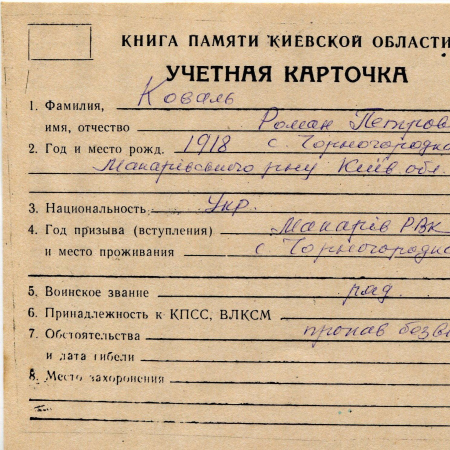 КНИГА ПАМЯТИ КИЕВСКОЙ ОБЛАСТИ
УЧЕТНАЯ КАРТОЧКА
1. Фамилия, Коваль
имя, отчество Роман Петров
2. Год и место рожд. 1918 с Чорногородка
Макарівського р-ну Київ обл.
3. Национальность Укр.
4. Год призыва (вступления) Макарів РВК
и место проживания с Чорногородка
5. Воинское звание ряд
6. Принадлежность к КПСС, ВЛКСМ
7. Обстоятельства пропав безві
и дата гибели
8. Место захоронения